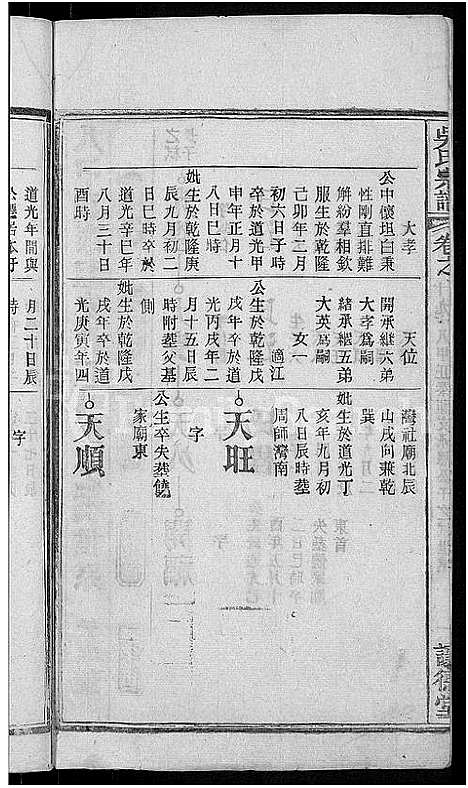 吳氏宗譜
卷之
讓德堂
大孝
公中懷坦白秉
性剛直排難
解紛羣相欽
服生於乾隆
己卯年二月
初六日子時
卒於道光甲
申年正月十
八日巳時
妣生於乾隆庚
辰九月初二
日巳時卒於
道光辛巳年
八月三十日
酉時
天位
開承繼六弟
大孝爲嗣
緒承繼五弟
大英爲嗣
女一
適江
公生於乾隆戊
戌年卒於道
光丙戌年二
月十五日辰
時附塟父墓
側
妣生於乾隆戊
戌年卒於道
光庚寅年四
灣社廟北辰
山戌向兼乾
巽
妣生於道光丁
亥年九月初
八日辰時塟
周師灣南
天旺
字
公生卒失塟饒
家廟東
天順
道光年間與
月二十日辰
時
字